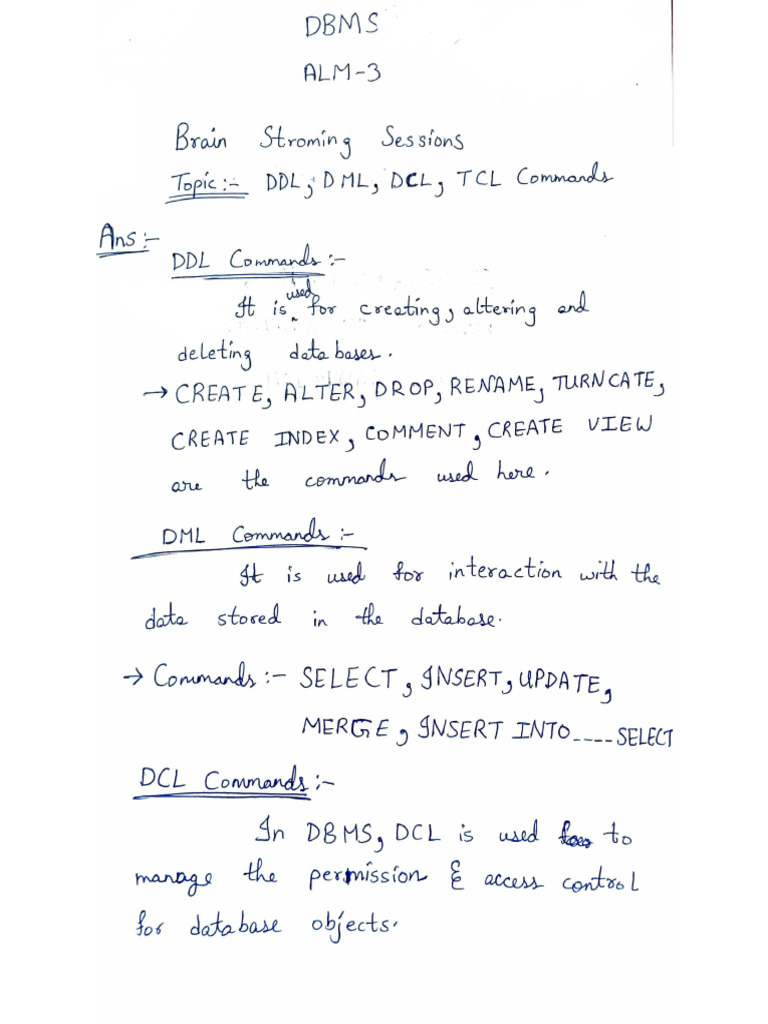 DBMS
ALM-3
Brain Stroming Sessions
Topic:- DDL, DML, DCL, TCL Commands
Ans:-
DDL Commands:-
It is used for creating, altering and
deleting databases.
→ CREATE, ALTER, DROP, RENAME, TURNCATE,
CREATE INDEX, COMMENT, CREATE VIEW
are the commands used here.
DML Commands:-
It is used for interaction with the
data stored in the database.
→ Commands:- SELECT, INSERT, UPDATE,
MERGE, INSERT INTO ---- SELECT
DCL Commands:-
In DBMS, DCL is used to
manage the permission & access control
for database objects.